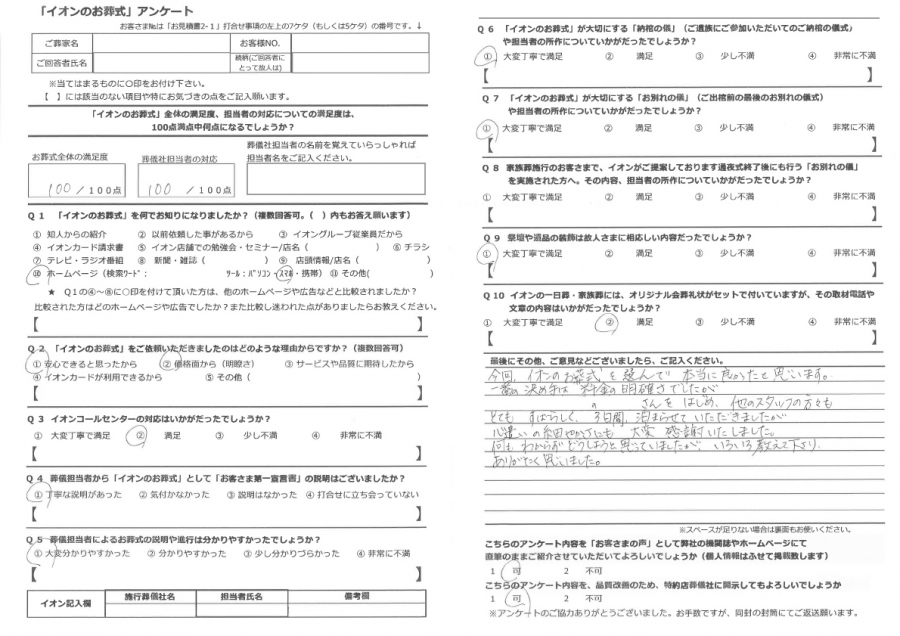 「イオンのお葬式」アンケート
お客さま№は「お見積書2-1」打合せ事項の左上の7ケタ（もしくは5ケタ）の番号です。↓
ご葬家名 お客様NO.
ご回答者氏名 続柄(ご回答者にとって故人は)
※当てはまるものに〇印をお付け下さい。
【　】には該当のない項目や特にお気づきの点をご記入願います。
「イオンのお葬式」全体の満足度、担当者の対応についての満足度は、
100点満点中何点になるでしょうか？
お葬式全体の満足度 葬儀社担当者の対応 葬儀社担当者の名前を覚えていらっしゃれば
担当者名をご記入ください。
100 / 100点 100 / 100点
Q 1 「イオンのお葬式」を何でお知りになりましたか？（複数回答可。(　) 内もお答え願います）
① 知人からの紹介 ② 以前依頼した事があるから ③ イオングループ従業員だから
④ イオンカード請求書 ⑤ イオン店舗での勉強会・セミナー/店名（　） ⑥ チラシ
⑦ テレビ・ラジオ番組 ⑧ 新聞・雑誌（　） ⑨ 店頭情報/店名（　）
⑩ ホームページ（検索ﾜｰﾄﾞ：　ﾂｰﾙ：ﾊﾟｿｺﾝ・ｽﾏﾎ・携帯） ⑪ その他(　)
★ Q１の④～⑧に〇印を付けて頂いた方は、他のホームページや広告などと比較されましたか？
比較された方はどのホームページや広告でしたか？また比較し迷われた点がありましたらお教えください。
【　】
Q 2 「イオンのお葬式」をご依頼いただきましたのはどのような理由からですか？（複数回答可）
① 安心できると思ったから ② 価格面から（明瞭さ） ③ サービスや品質に期待したから
④ イオンカードが利用できるから ⑤ その他（　）
【　】
Q 3 イオンコールセンターの対応はいかがだったでしょうか？
① 大変丁寧で満足 ② 満足 ③ 少し不満 ④ 非常に不満
【　】
Q 4 葬儀担当者から「イオンのお葬式」として「お客さま第一宣言書」の説明はございましたか？
① 丁寧な説明があった ② 気付かなかった ③ 説明はなかった ④ 打合せに立ち会っていない
【　】
Q 5 葬儀担当者によるお葬式の説明や進行は分かりやすかったでしょうか？
① 大変分かりやすかった ② 分かりやすかった ③ 少し分りづらかった ④ 非常に不満
【　】
イオン記入欄 施行葬儀社名 担当者氏名 備考欄
Q 6 「イオンのお葬式」が大切にする「納棺の儀」（ご遺族にご参加いただいてのご納棺の儀式）
や担当者の所作についていかがだったでしょうか？
① 大変丁寧で満足 ② 満足 ③ 少し不満 ④ 非常に不満
【　】
Q 7 「イオンのお葬式」が大切にする「お別れの儀」（ご出棺前の最後のお別れの儀式）
や担当者の所作についていかがだったでしょうか？
① 大変丁寧で満足 ② 満足 ③ 少し不満 ④ 非常に不満
【　】
Q 8 家族葬施行のお客さまで、イオンがご提案しております通夜式終了後にも行う「お別れの儀」
を実施された方へ。その内容、担当者の所作についていかがだったでしょうか？
① 大変丁寧で満足 ② 満足 ③ 少し不満 ④ 非常に不満
【　】
Q 9 祭壇や遺品の装飾は故人さまに相応しい内容だったでしょうか？
① 大変丁寧で満足 ② 満足 ③ 少し不満 ④ 非常に不満
【　】
Q 10 イオンの一日葬・家族葬には、オリジナル会葬礼状がセットで付いていますが、その取材電話や
文章の内容はいかがだったでしょうか？
① 大変丁寧で満足 ② 満足 ③ 少し不満 ④ 非常に不満
【　】
最後にその他、ご意見などございましたら、ご記入ください。
今回、イオンのお葬式を選んで 本当に良かったと思います。
一番の決め手は 料金の明確さでしたが
さんをはじめ、他のスタッフの方々も
とても すばらしく、3日間、泊まらせていただきましたが
心遣いの細やかさにも 大変 感謝いたしました。
何も わからず どうしようと思っていましたが、いろいろ教えて下さり、
ありがたく思いました。
※スペースが足りない場合は裏面もお使いください。
こちらのアンケート内容を「お客さまの声」として弊社の機関誌やホームページにて
直筆のままご紹介させていただいてよろしいでしょうか（個人情報はふせて掲載致します）
1 可 2 不可
こちらのアンケート内容を、品質改善のため、特約店葬儀社に開示してもよろしいでしょうか
1 可 2 不可
※アンケートのご協力ありがとうございました。お手数ですが、同封の封筒にてご返送願います。